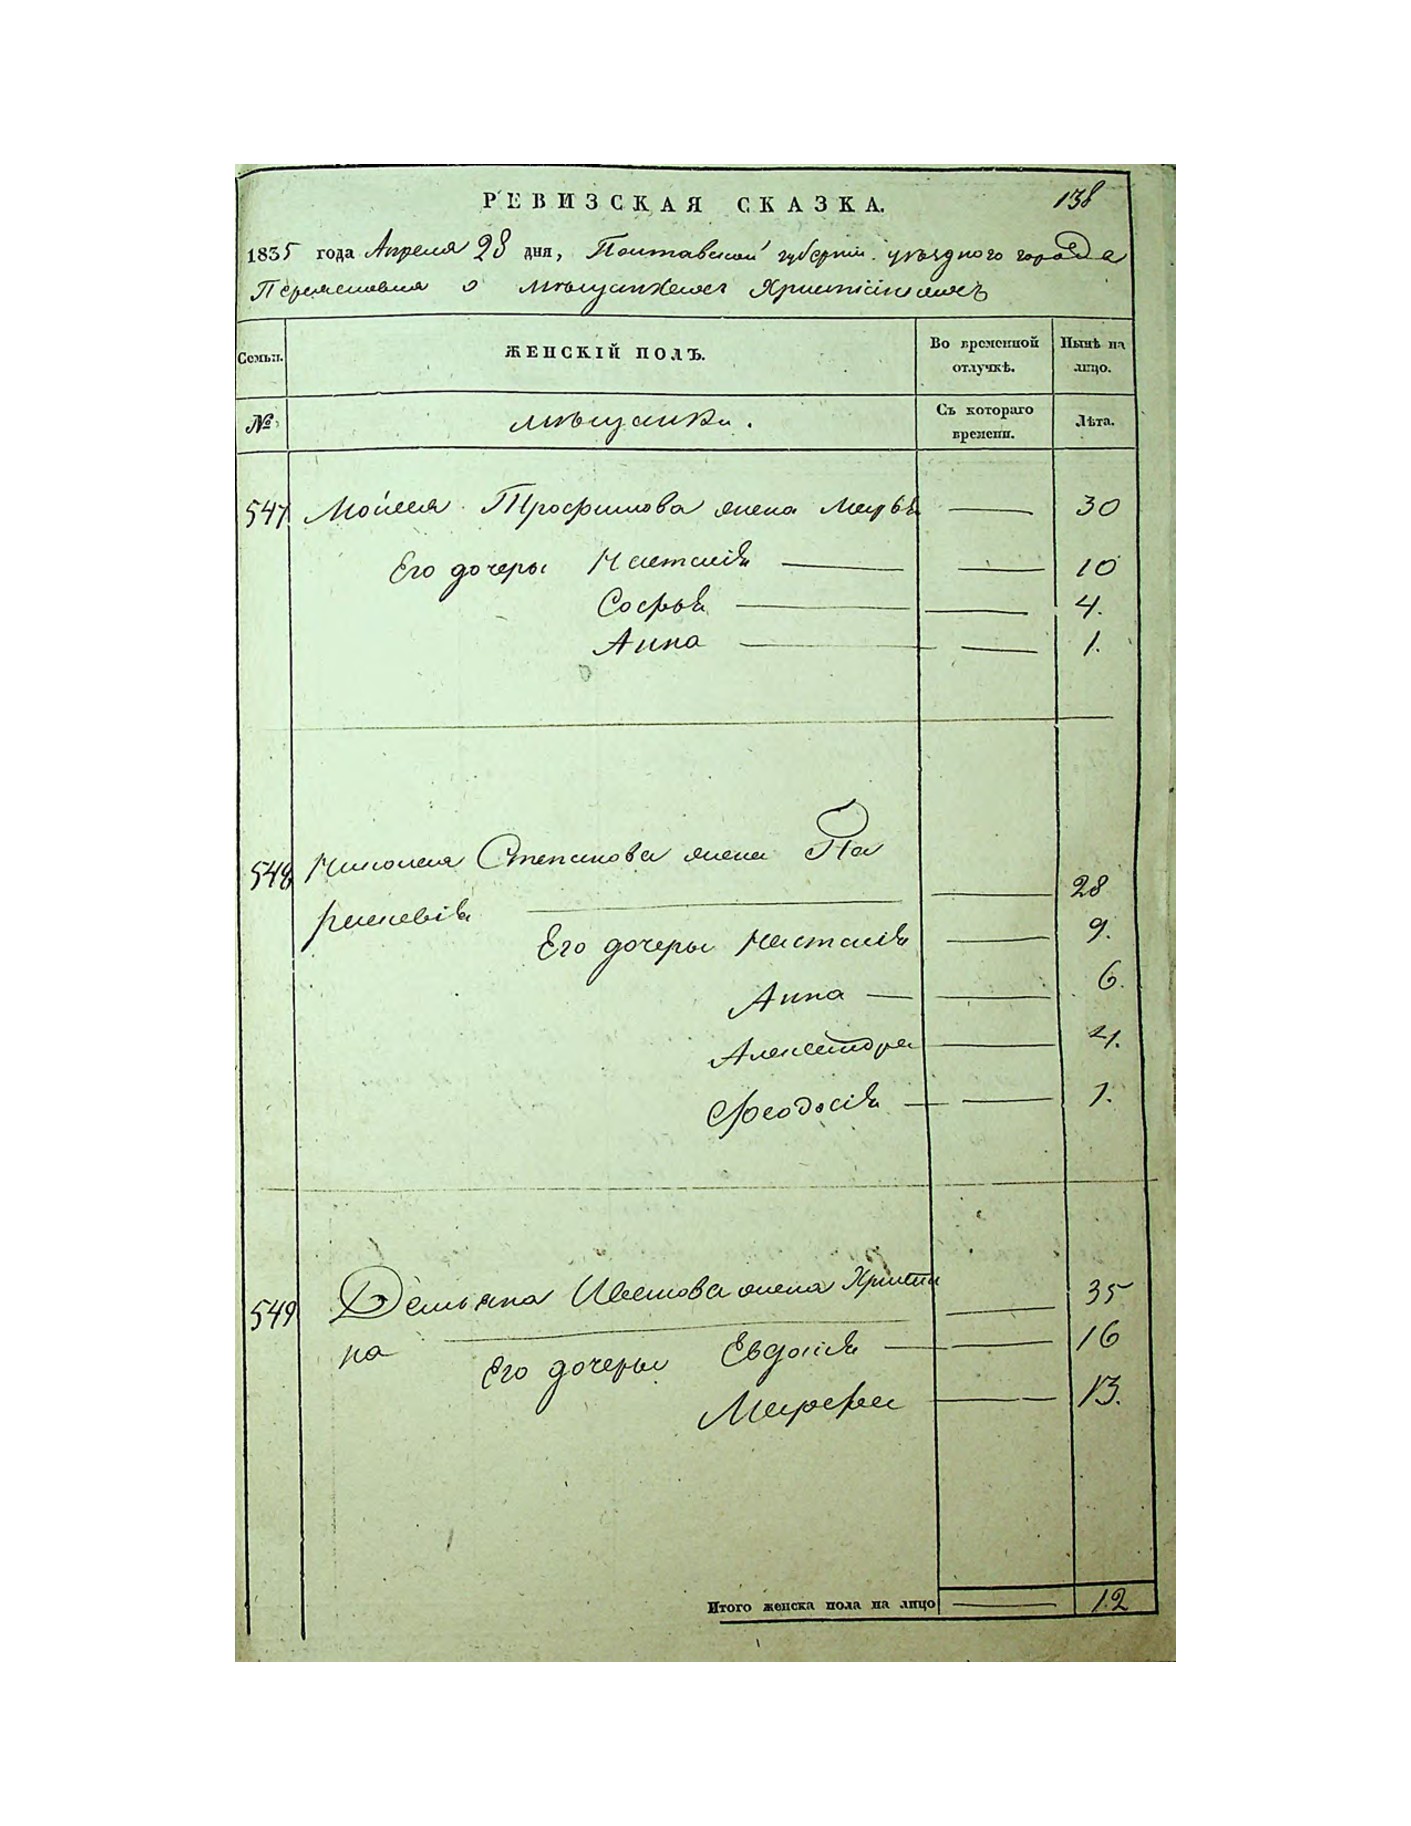 РЕВИЗСКАЯ СКАЗКА. 138
1835 года Апреля 28 дня, Полтавской губернии уѣзднаго города
Переяслава о мѣщанхъ Христіянахъ
Семьи. ЖЕНСКІЙ ПОЛЪ. Во временной отлучкѣ. Нынѣ на лицо.
№ мѣщанки. Съ котораго времени. Лѣта.
547 Мойсея Трофимова жена Марья — 30
Его дочеры Наталія — 10
Софья — 4.
Анна — 1.
548 Николая Степанова жена Па
раскевія — 28
Его дочеры Наталія — 9.
Анна — 6.
Александра — 4.
Феодосія — 1.
549 Демьяна жена Христи
на — 35
Его дочеры Евдокія — 16
Марфа — 13.
Итого женска пола на лицо — 12